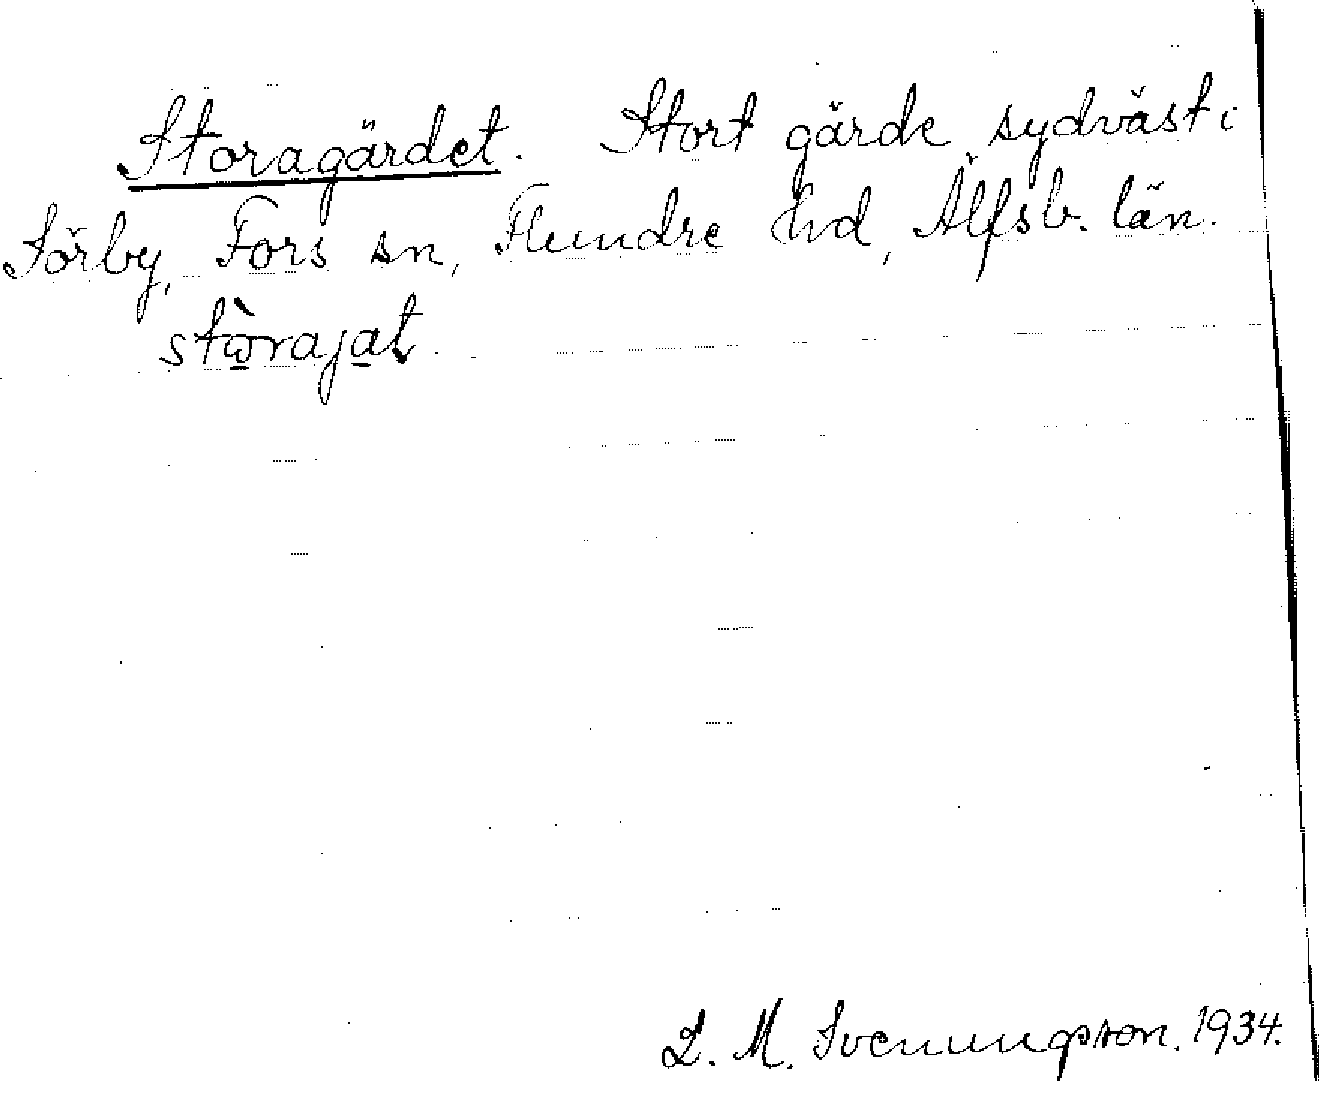 Storagärdet. Stort gärde sydväst i
Sörby, Fors sn, Flundre hd, Älfsb. län.
stὼ̲raja̲t.
L. M. Svenungsson. 1934.